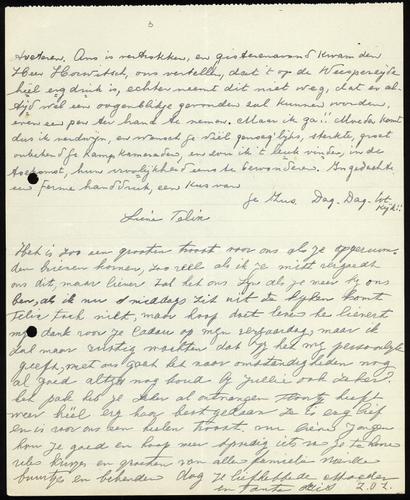 3
Ans is vertrokken, en gisterenavond kwam den
Heer Horwitsch, ons vertellen, dat 't op de Weesperzijde
heel erg druk is, echter neemt dit niet weg, dat er al-
tijd wel een oogenblikje gevonden zal kunnen worden,
even een pen ter hand te nemen. Maar ik ga!! Moeder komt
dus ik verdwijn, en wensch je veel pleizier, sterkte, groet
onbekend je Kampkameraden, en zou ik 't leuk vinden, in de
toekomst, hun vroolijkheid eens te bewonderen. In gedachte
een ferme handdruk, een kus van
je Zus. Dag. Dag.
Lieve Felix
Het is zoo een grooten troost voor ons als je opgeruim-
den brieven komen, zoo veel als ik je mist
ons dit, maar liever zal het ons zijn als je weer bij ons
ben, als ik nu s'middags zit uit te kijken komt
Felix toch niet, maar hoop doet leven
dank voor je Cadau op mijn verjaardag, maar ik
zal maar rustig wachten dat jij hem mij persoonlijk
geeft, met ons gaat het naar omstandigheden nog
al goed altijd nog houd bij jullie ook zeker.
pak heb je zeker al ontvangen heeft
weer heel erg haar best gedaan ze is erg lief
en is voor ons een heelen troost, nu lieve Jongen
hou je goed en hoop weer spoedig iets van je te hooren
vele kusjes en groeten van alle familie vrienden
buurtjes en bekenden Dag je liefhebbende Moeder
en tante